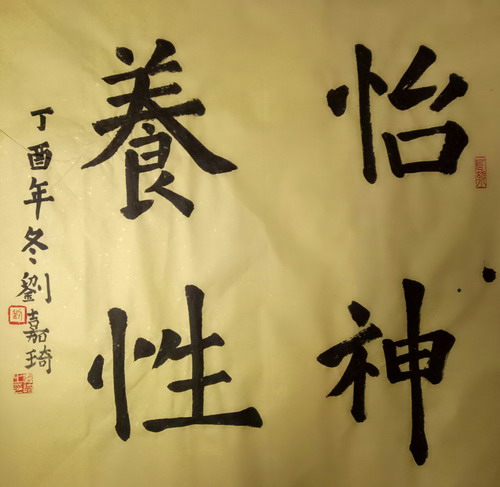 怡神
養性
丁酉年冬劉嘉琦